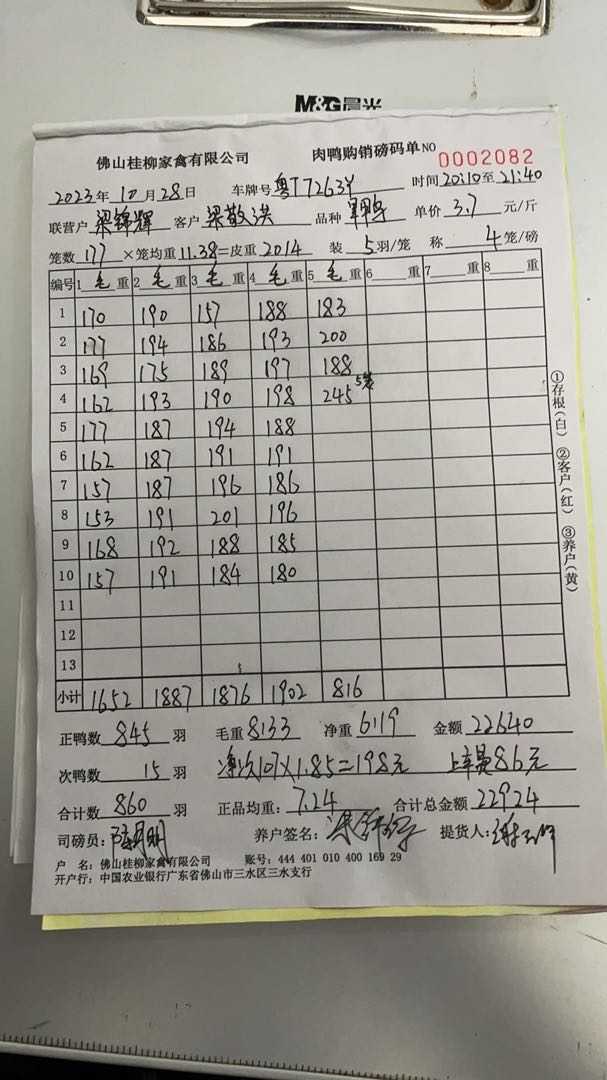 M&G晨光
佛山桂柳家禽有限公司 肉鸭购销磅码单 NO 0002082
2023年10月28日 车牌号 粤T7263Y 时间 20:10至21:40
联营户 梁锦辉 客户 梁敬洪 品种 单价 3.7 元/斤
笼数 177 ×笼均重 11.38=皮重 2014 装 5 羽/笼 称 4 笼/磅
编号 1 毛 重 2 毛 重 3 毛 重 4 毛 重 5 毛 重 6 重 7 重 8 重
1 170 190 157 188 183
2 177 194 186 193 200
3 169 175 189 197 188
4 162 193 190 198 245 5笼
5 177 187 194 188
6 162 187 191 191
7 157 187 196 186
8 153 191 201 196
9 168 192 188 185
10 157 191 184 180
11
12
13
小计 1652 1887 1876 1902 816
正鸭数 845 羽 毛重 8133 净重 6119 金额 22640
次鸭数 15 羽 净次107×1.85=198元 上车费86元
合计数 860 羽 正品均重: 7.24 合计总金额 22924
司磅员: 养户签名: 提货人:
户 名: 佛山桂柳家禽有限公司 账号: 444 401 010 400 169 29
开户行: 中国农业银行广东省佛山市三水区三水支行
①存根(白) ②客户(红) ③养户(黄)